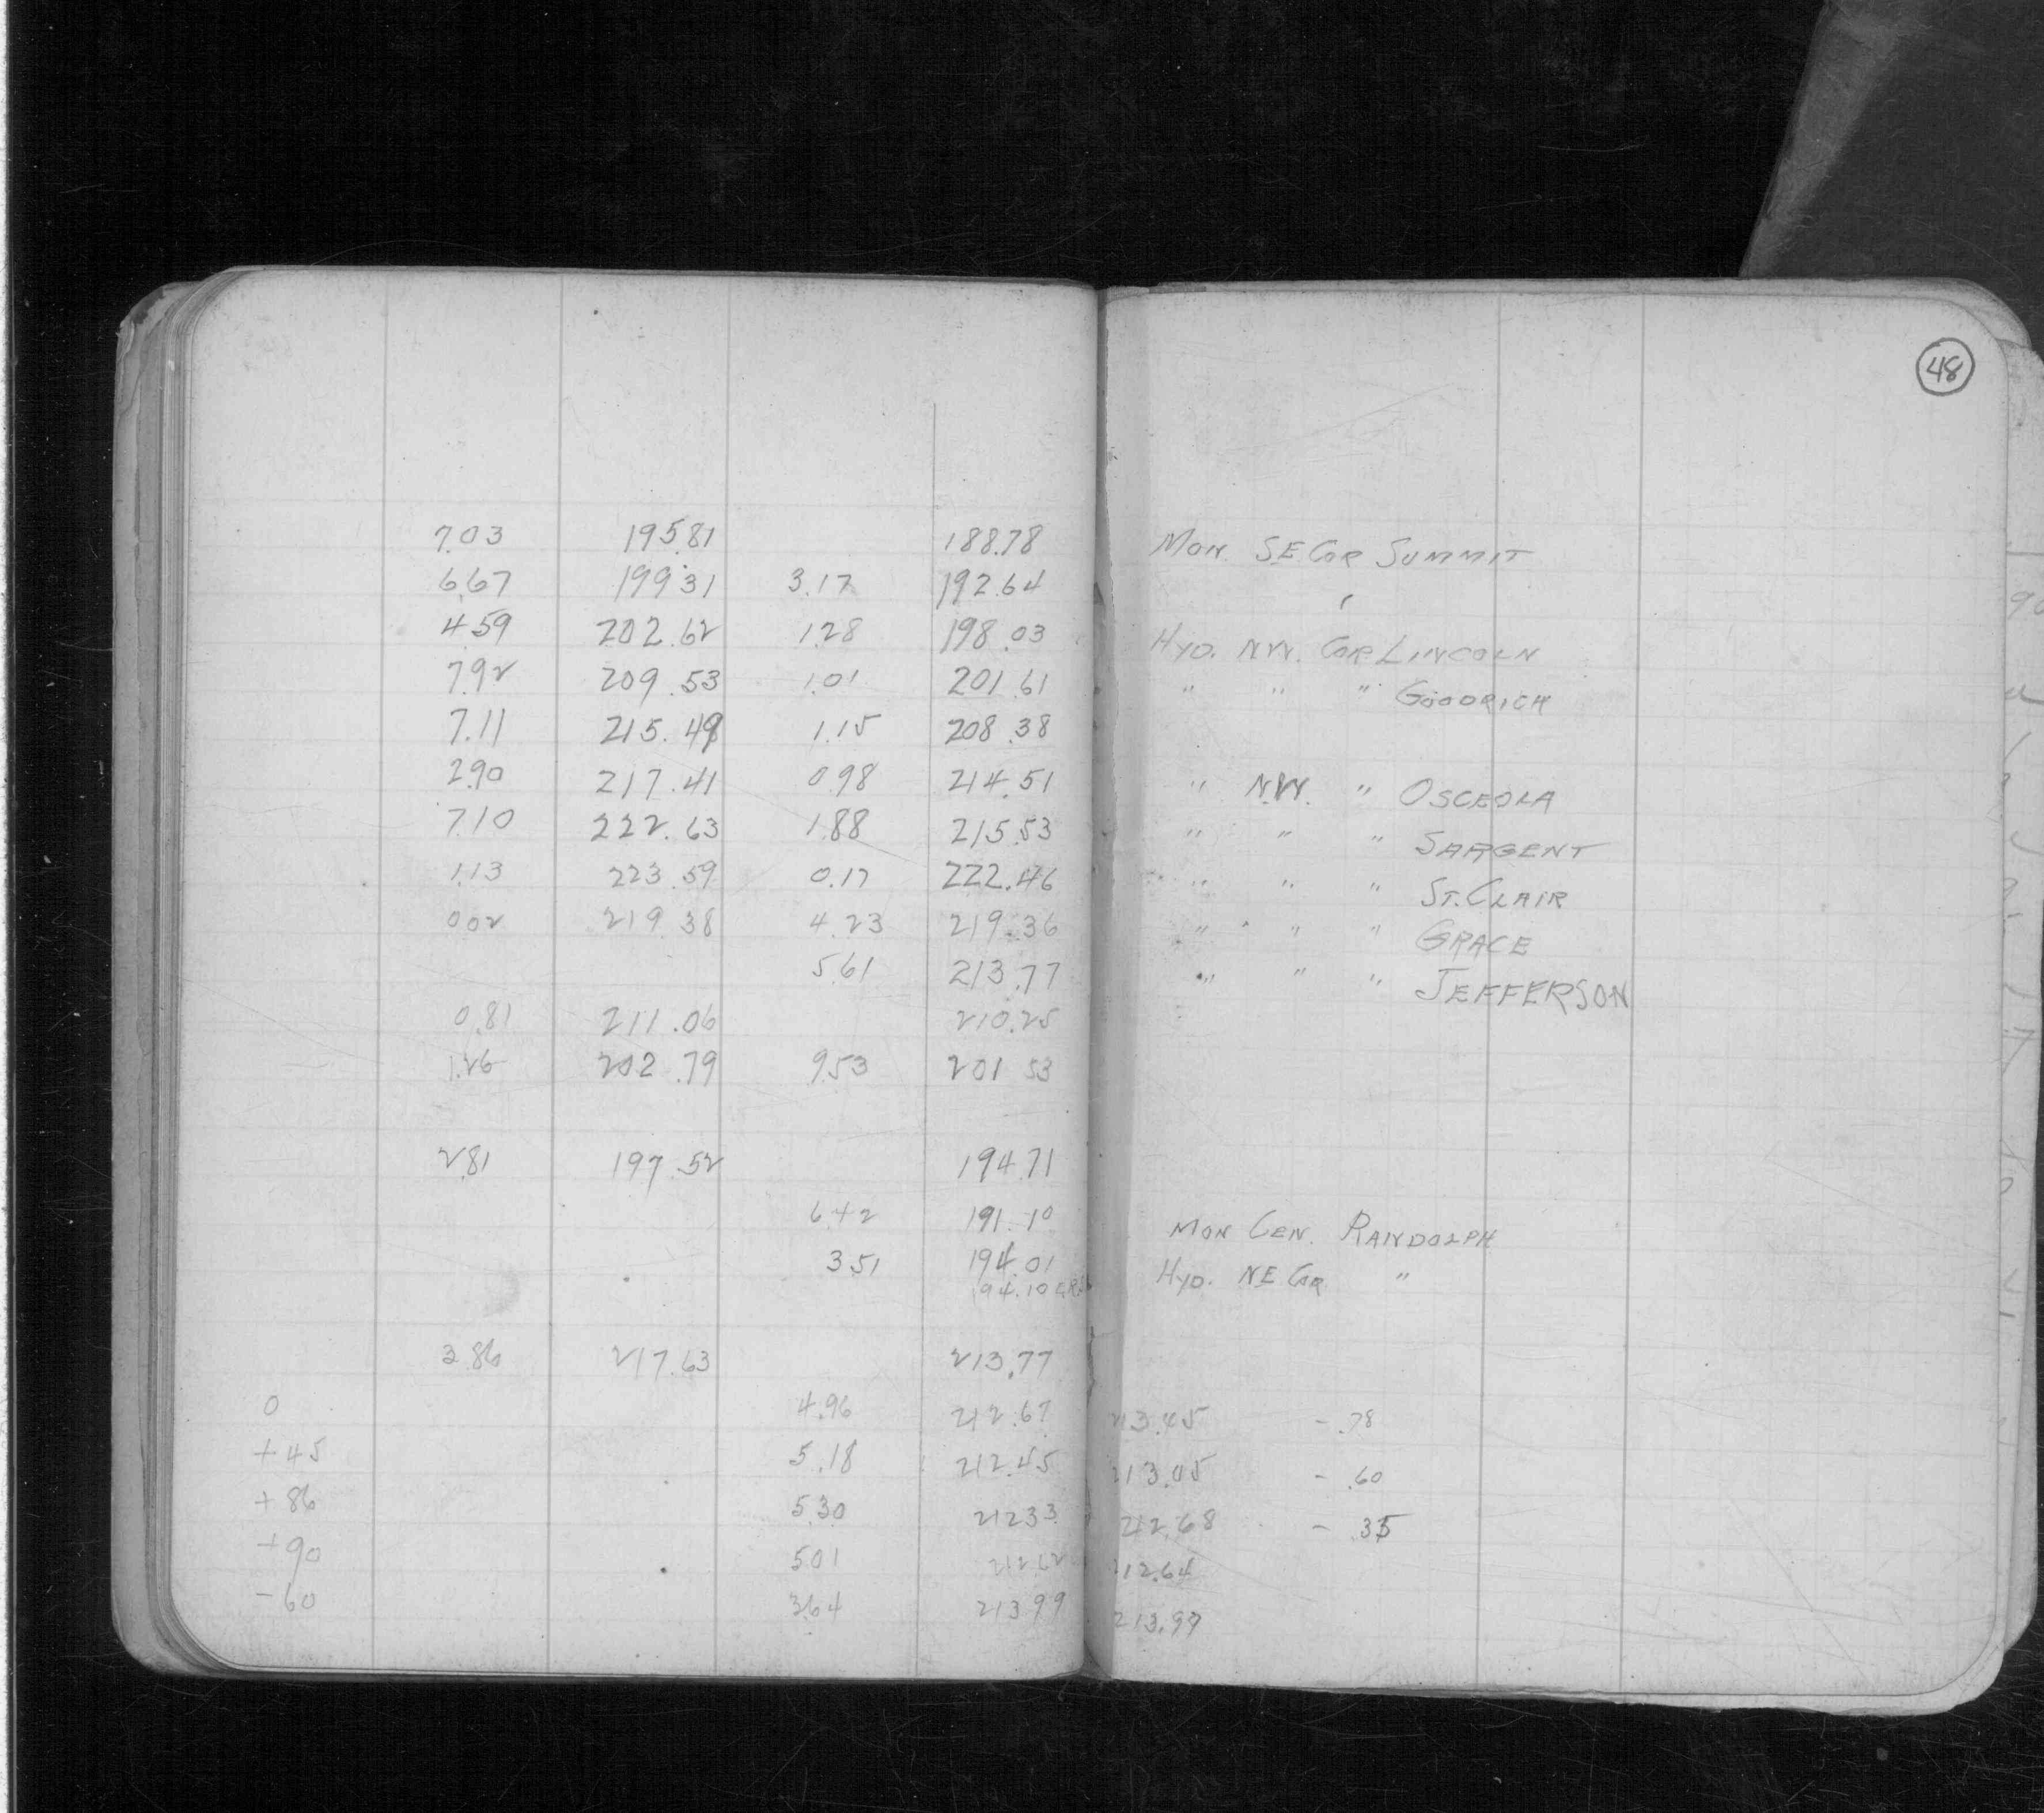 48
7.03 195.81 188.78 MON. S.E. COR SUMMIT
6.67 199.31 3.17 192.64
4.59 202.62 1.28 198.03 HYD. N.W. COR LINCOLN
7.92 209.53 1.01 201.61 " " " GOODRICH
7.11 215.49 1.15 208.38
2.90 217.41 0.98 214.51 " N.W. " OSCEOLA
7.10 222.63 1.88 215.53 " " " SARGENT
1.13 223.59 0.17 222.46 " " " ST. CLAIR
0.02 219.38 4.23 219.36 " " " GRACE
5.61 213.77 " " " JEFFERSON
0.81 211.06 210.25
1.26 202.79 9.53 201.53
2.81 197.52 194.71
6.42 191.10 MON CEN. RANDOLPH
3.51 194.01 HYD. NE COR "
94.10
3.86 217.63 213.77
0 4.96 212.67 213.45 - .78
+45 5.18 212.45 213.05 - .60
+86 5.30 212.33 212.68 - .35
+90 5.01 212.62 212.64
-60 3.64 213.99 213.99